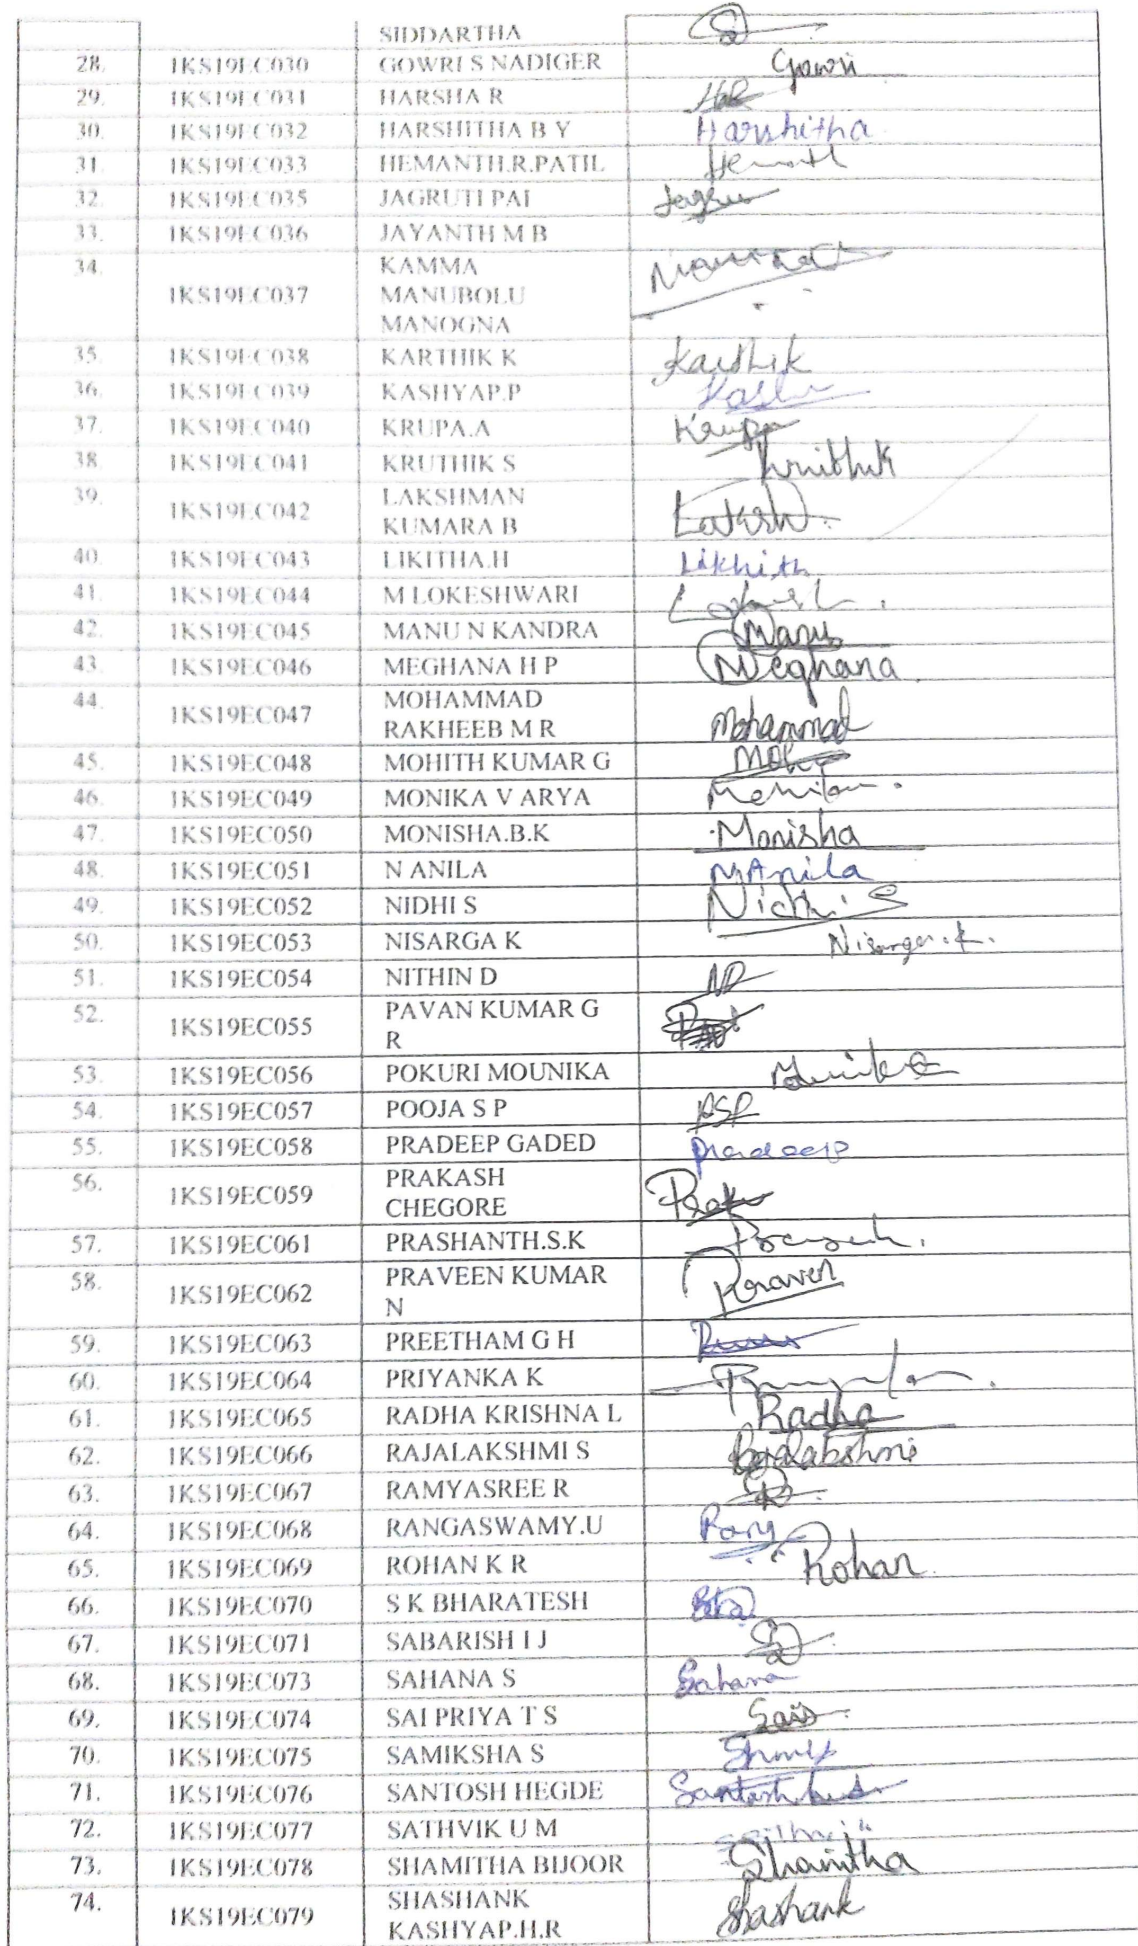 SIDDARTHA
28. 1KS19EC030 GOWRI S NADIGER Gowri
29. 1KS19EC031 HARSHA R
30. 1KS19EC032 HARSHITHA B Y Harshitha
31. 1KS19EC033 HEMANTH.R.PATIL
32. 1KS19EC035 JAGRUTI PAI
33. 1KS19EC036 JAYANTH M B
34. KAMMA
1KS19EC037 MANUBOLU
MANOGNA
35. 1KS19EC038 KARTHIK K Karthik
36. 1KS19EC039 KASHYAP.P
37. 1KS19EC040 KRUPA.A Krupa
38. 1KS19EC041 KRUTHIK S Kruthik
39. 1KS19EC042 LAKSHMAN
KUMARA B
40. 1KS19EC043 LIKITHA.H Likhith
41. 1KS19EC044 M LOKESHWARI
42. 1KS19EC045 MANU N KANDRA Manu
43. 1KS19EC046 MEGHANA H P Meghana
44. 1KS19EC047 MOHAMMAD
RAKHEEB M R Mohammad
45. 1KS19EC048 MOHITH KUMAR G
46. 1KS19EC049 MONIKA V ARYA
47. 1KS19EC050 MONISHA.B.K Monisha
48. 1KS19EC051 N ANILA N Anila
49. 1KS19EC052 NIDHI S Nidhi S
50. 1KS19EC053 NISARGA K Nisarga.k.
51. 1KS19EC054 NITHIN D
52. 1KS19EC055 PAVAN KUMAR G
R
53. 1KS19EC056 POKURI MOUNIKA
54. 1KS19EC057 POOJA S P PSP
55. 1KS19EC058 PRADEEP GADED Pradeep
56. 1KS19EC059 PRAKASH
CHEGORE
57. 1KS19EC061 PRASHANTH.S.K
58. 1KS19EC062 PRAVEEN KUMAR
N Praven
59. 1KS19EC063 PREETHAM G H
60. 1KS19EC064 PRIYANKA K
61. 1KS19EC065 RADHA KRISHNA L Radha
62. 1KS19EC066 RAJALAKSHMI S Rajalakshmi
63. 1KS19EC067 RAMYASREE R
64. 1KS19EC068 RANGASWAMY.U Rang
65. 1KS19EC069 ROHAN K R Rohan
66. 1KS19EC070 S K BHARATESH
67. 1KS19EC071 SABARISH I J
68. 1KS19EC073 SAHANA S Sahana
69. 1KS19EC074 SAI PRIYA T S
70. 1KS19EC075 SAMIKSHA S
71. 1KS19EC076 SANTOSH HEGDE Santosh
72. 1KS19EC077 SATHVIK U M
73. 1KS19EC078 SHAMITHA BIJOOR Shamitha
74. 1KS19EC079 SHASHANK
KASHYAP.H.R Shashank